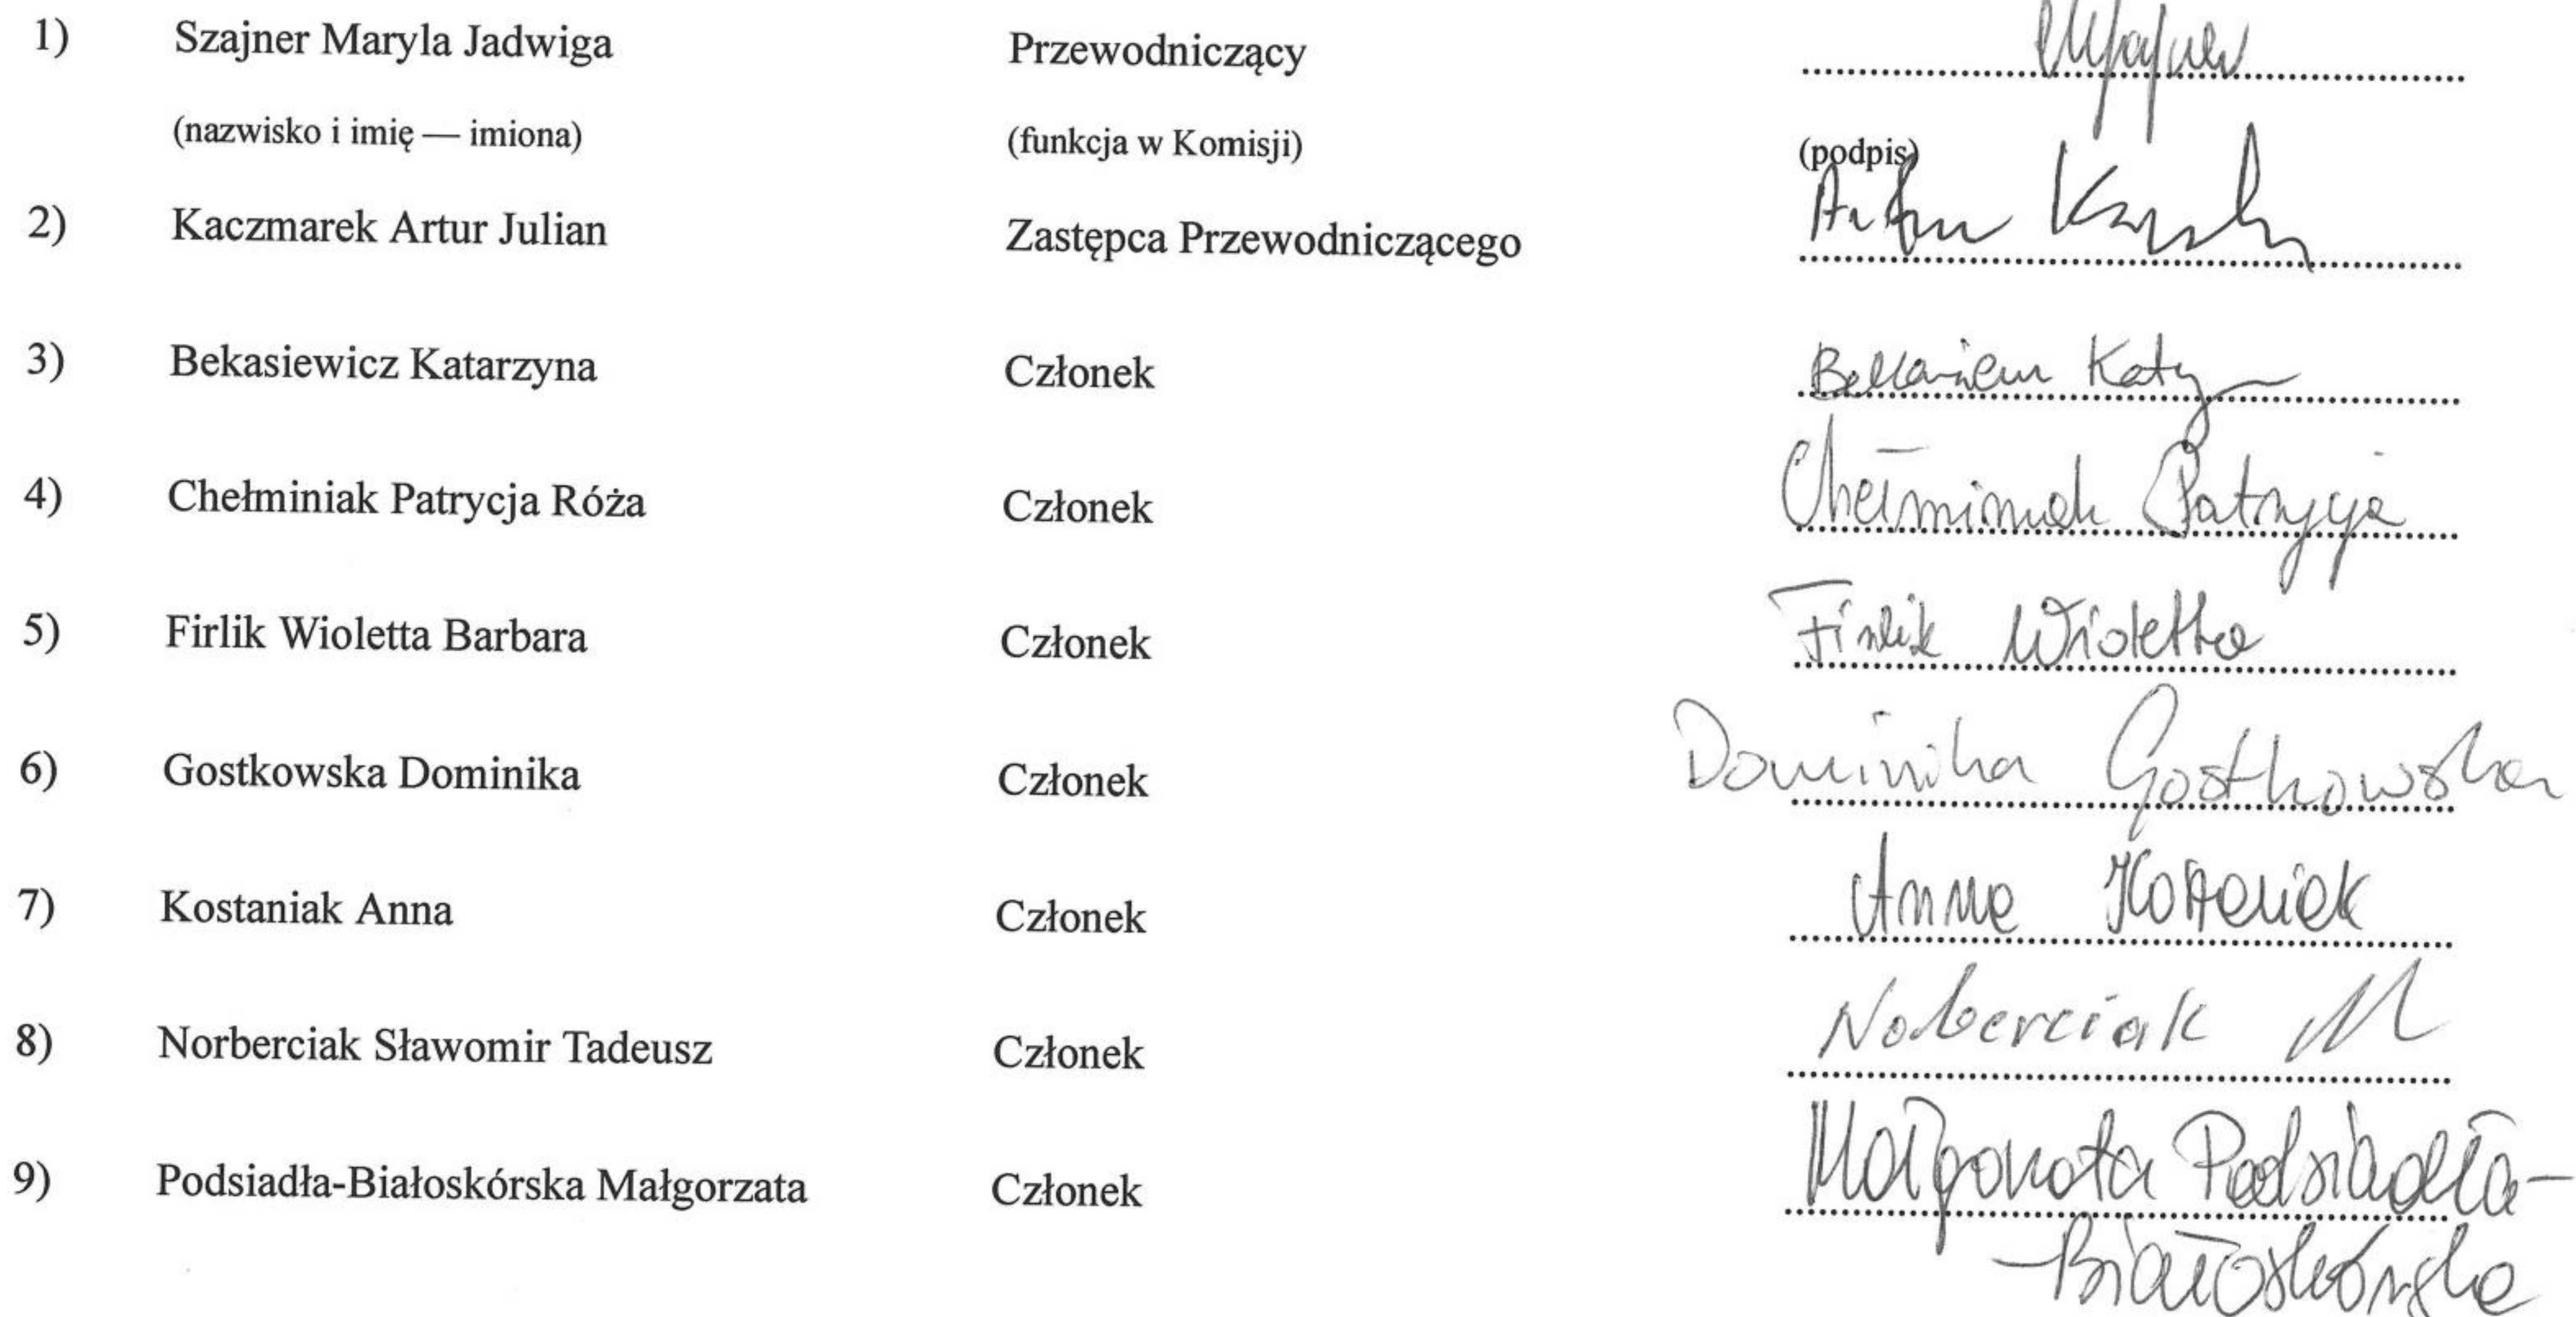 1) Szajner Maryla Jadwiga Przewodniczący
(nazwisko i imię — imiona) (funkcja w Komisji) (podpis)
2) Kaczmarek Artur Julian Zastępca Przewodniczącego Artur
3) Bekasiewicz Katarzyna Członek
4) Chełminiak Patrycja Róża Członek Chełminiak Patrycja
5) Firlik Wioletta Barbara Członek Firlik Wioletta
6) Gostkowska Dominika Członek Dominika Gostkowska
7) Kostaniak Anna Członek Anna Kostaniak
8) Norberciak Sławomir Tadeusz Członek Noberciak
9) Podsiadła-Białoskórska Małgorzata Członek Małgorzata Podsiadła-
-Białoskórska